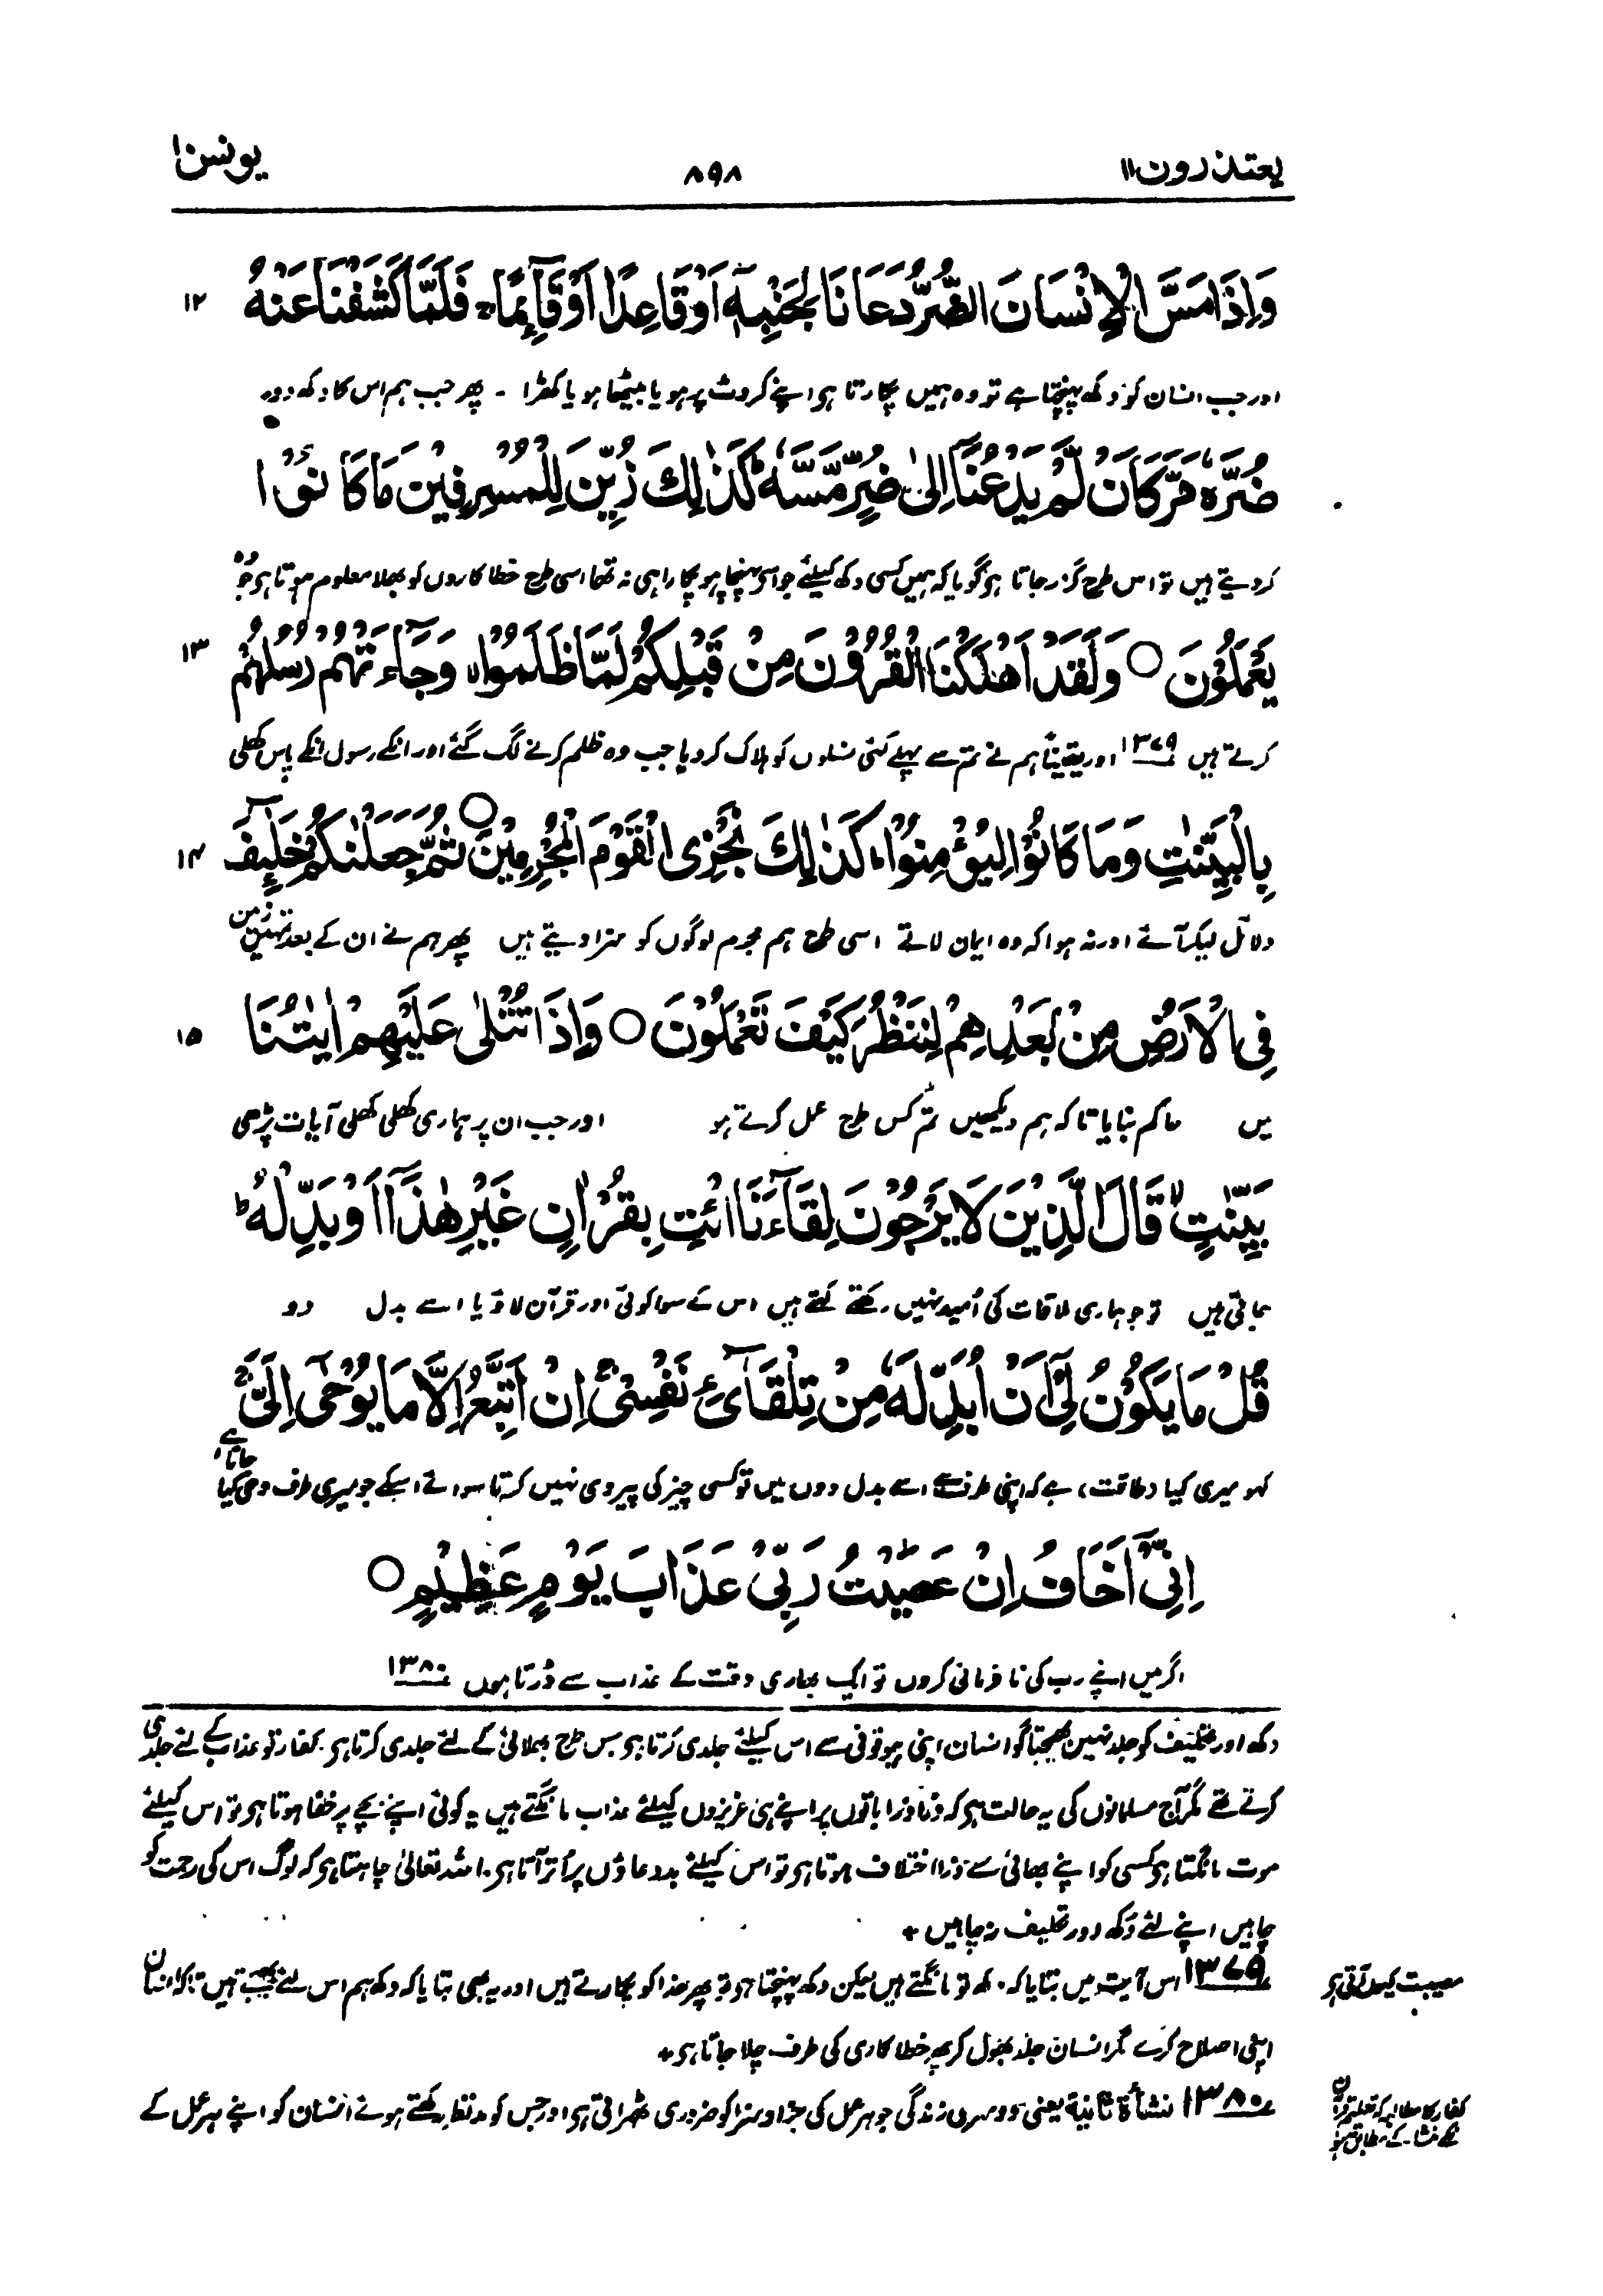 یعتذرون۱۱
۸۹۸
یونس۱۰
وَاِذَا مَسَّ الْاِنْسَانَ الضُّرُّ دَعَانَا لِجَنْۢبِهٖۤ اَوْ قَاعِدًا اَوْ قَآئِمًا ۚ فَلَمَّا كَشَفْنَا عَنْهُ
۱۲
اور جب انسان کو دکھ پہنچتا ہے تو وہ ہمیں پکارتا ہی اپنے کروٹ پر ہو یا بیٹھا ہو یا کھڑا ۔ پھر جب ہم اس کا دکھ دور
ضُرَّهٗ مَرَّ كَاَنْ لَّمْ يَدْعُنَاۤ اِلٰى ضُرٍّ مَّسَّهٗ ؕ كَذٰلِكَ زُيِّنَ لِلْمُسْرِفِيْنَ مَا كَانُوْا
کر دیتے ہیں تو اس طرح گزر جاتا ہی گویا کہ ہمیں کسی دکھ کیلئے جو اسے پہنچا ہو پکارا ہی نہ تھا اسی طرح خطا کاروں کو بھلا معلوم ہوتا ہی جو وہ
يَعْمَلُوْنَ ○ وَلَقَدْ اَهْلَكْنَا الْقُرُوْنَ مِنْ قَبْلِكُمْ لَمَّا ظَلَمُوْا ۙ وَجَآءَتْهُمْ رُسُلُهُمْ
۱۳
کرتے ہیں ۱۳۷۹ اور یقیناً ہم نے تم سے پہلے کئی نسلوں کو ہلاک کر دیا جب وہ ظلم کرنے لگ گئے اور انکے رسول انکے پاس کھلی
بِالْبَيِّنٰتِ وَمَا كَانُوْا لِيُؤْمِنُوْا ؕ كَذٰلِكَ نَجْزِى الْقَوْمَ الْمُجْرِمِيْنَ ○ ثُمَّ جَعَلْنٰكُمْ خَلٰٓئِفَ
۱۴
دلائل لیکر آئے اور نہ ہوا کہ وہ ایمان لاتے اسی طرح ہم مجرم لوگوں کو سزا دیتے ہیں پھر ہم نے ان کے بعد تمہیں زمین
فِى الْاَرْضِ مِنْۢ بَعْدِهِمْ لِنَنْظُرَ كَيْفَ تَعْمَلُوْنَ ○ وَاِذَا تُتْلٰى عَلَيْهِمْ اٰيَاتُنَا
۱۵
میں حاکم بنایا تاکہ ہم دیکھیں تم کس طرح عمل کرتے ہو اور جب ان پر ہماری کھلی کھلی آیات پڑھی
بَيِّنٰتٍ ۙ قَالَ الَّذِيْنَ لَا يَرْجُوْنَ لِقَآءَنَا ائْتِ بِقُرْاٰنٍ غَيْرِ هٰذَاۤ اَوْ بَدِّلْهُ ؕ
جاتی ہیں تو جو ہماری ملاقات کی اُمید نہیں رکھتے کہتے ہیں اس کے سوا کوئی اور قرآن لاؤ یا اسے بدل دو
قُلْ مَا يَكُوْنُ لِىْۤ اَنْ اُبَدِّلَهٗ مِنْ تِلْقَآئِ نَفْسِىْ ۚ اِنْ اَتَّبِعُ اِلَّا مَا يُوْحٰۤى اِلَىَّ ۚ
کہو میری کیا (طاقت) ہے کہ اپنی طرف سے اسے بدل دوں میں تو کسی چیز کی پیروی نہیں کرتا سوائے اسکے جو میری طرف وحی کیا جاتا ہے
اِنِّىْۤ اَخَافُ اِنْ عَصَيْتُ رَبِّىْ عَذَابَ يَوْمٍ عَظِيْمٍ ○
اگر میں اپنے رب کی نافرمانی کروں تو ایک بھاری وقت کے عذاب سے ڈرتا ہوں ۱۳۸۰
دکھ اور تکلیف کو جلد نہیں بھیجتا گو انسان اپنی بیوقوفی سے اس کیلئے جلدی کرتا ہی جس طرح بھلائی کے لئے جلدی کرتا ہی کفار تو عذاب کے لئے جلدی
کرتے تھے مگر آج مسلمانوں کی یہ حالت ہی کہ ذرا ذرا باتوں پر اپنے ہی عزیزوں کیلئے عذاب مانگتے ہیں کوئی اپنے بچے پر خفا ہوتا ہی تو اس کیلئے
موت مانگتا ہی کسی کو اپنے بھائی سے ذرا اختلاف ہوتا ہی تو اس کیلئے بددعاؤں پر اُتر آتا ہی۔ اللہ تعالیٰ چاہتا ہی کہ لوگ اس کی رحمت کو
چاہیں اپنے لئے دُکھ اور تکلیف نہ چاہیں +
۱۳۷۹ اس آیت میں بتایا کہ دکھ تو مانگتے ہیں لیکن دکھ پہنچتا ہی تو پھر خدا کو پکارتے ہیں اور یہ بھی بتایا کہ دکھ ہم اس لئے بھیجتے ہیں تاکہ انسان
مصیبت کیوں آتی ہی
اپنی اصلاح کرے مگر انسان جلد بھول کر پھر خطا کاری کی طرف چلا جاتا ہی +
۱۳۸۰ نشأۃ ثانیۃ یعنی دوسری زندگی جو ہر عمل کی جزا و سزا کو ضروری ٹھہراتی ہی اور جس کو مدنظر رکھتے ہوئے انسان کو اپنے ہر عمل کے
کفار کا مطالبہ کہ تعلیم قرآن
انکے منشا کے مطابق ہو